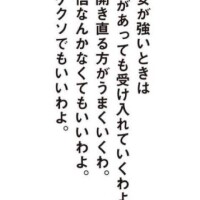 安が強いときは
があっても受け入れていくわよ
開き直る方がうまくいくわ。
信なんかなくてもいいわよ。
ケクソでもいいわよ。